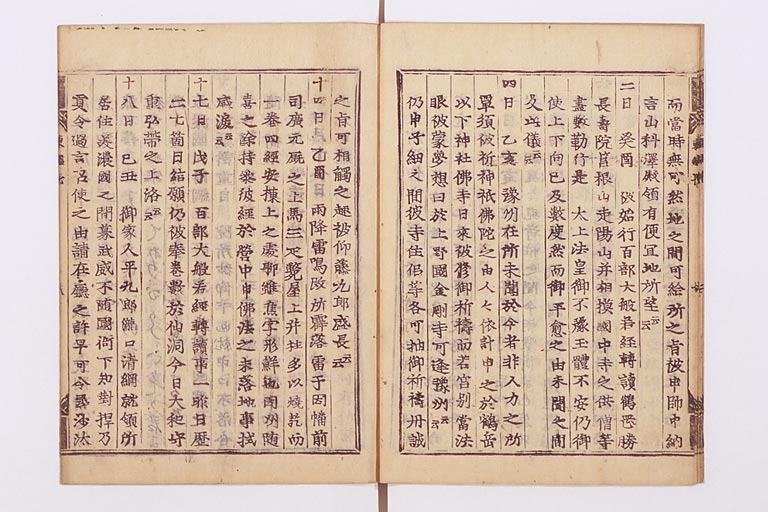 而當時無可然地之間可給所之旨被申帥中納
言山科澤殿領有便宜地所望云云
二日 癸酉 被始行百部大般若經轉讀鶴岡勝
長壽院箱根山走陽山并相摸國中寺之供僧等
盡數勤行是 太上法皇御不豫玉體不安仍御
使上下向已及數度然而御平愈之由未聞之間
及此儀云云
四日 乙亥 豫州在所未聞於今者非人力之所
覃須被祈神祇佛陀之由人々依計申之於鶴岳
以下神社佛寺日來被修御祈禱而若宮別當法
眼被蒙夢想曰於上野國金剛寺可逢豫州云云
仍申子細之間彼寺住侶等各可抽御祈禱丹誠
之旨可相觸之趣被仰藤九郎盛長云云
十四日 乙酉 雨降雷鳴政所霹落雷于因幡前
司廣元厩之上馬三疋斃屋上升柱多以燒訖而
一卷四經安棟上之處聊雖焦字形鮮也因州随
喜之餘持參彼經於營中申佛法之未落地事拭
感淚云云
十七日 戊子 百部大般若經轉讀事二昨日歷
二七箇日結願仍被奉卷數於仙洞今日大和守
重弘帶之上洛云云
十八日 己丑 御家人平九郎瀧口清綱就領所
居住美濃國之間募武威不随國衙下知對捍乃
貢令過言官使之由請在廳之訴早可令尋沙汰